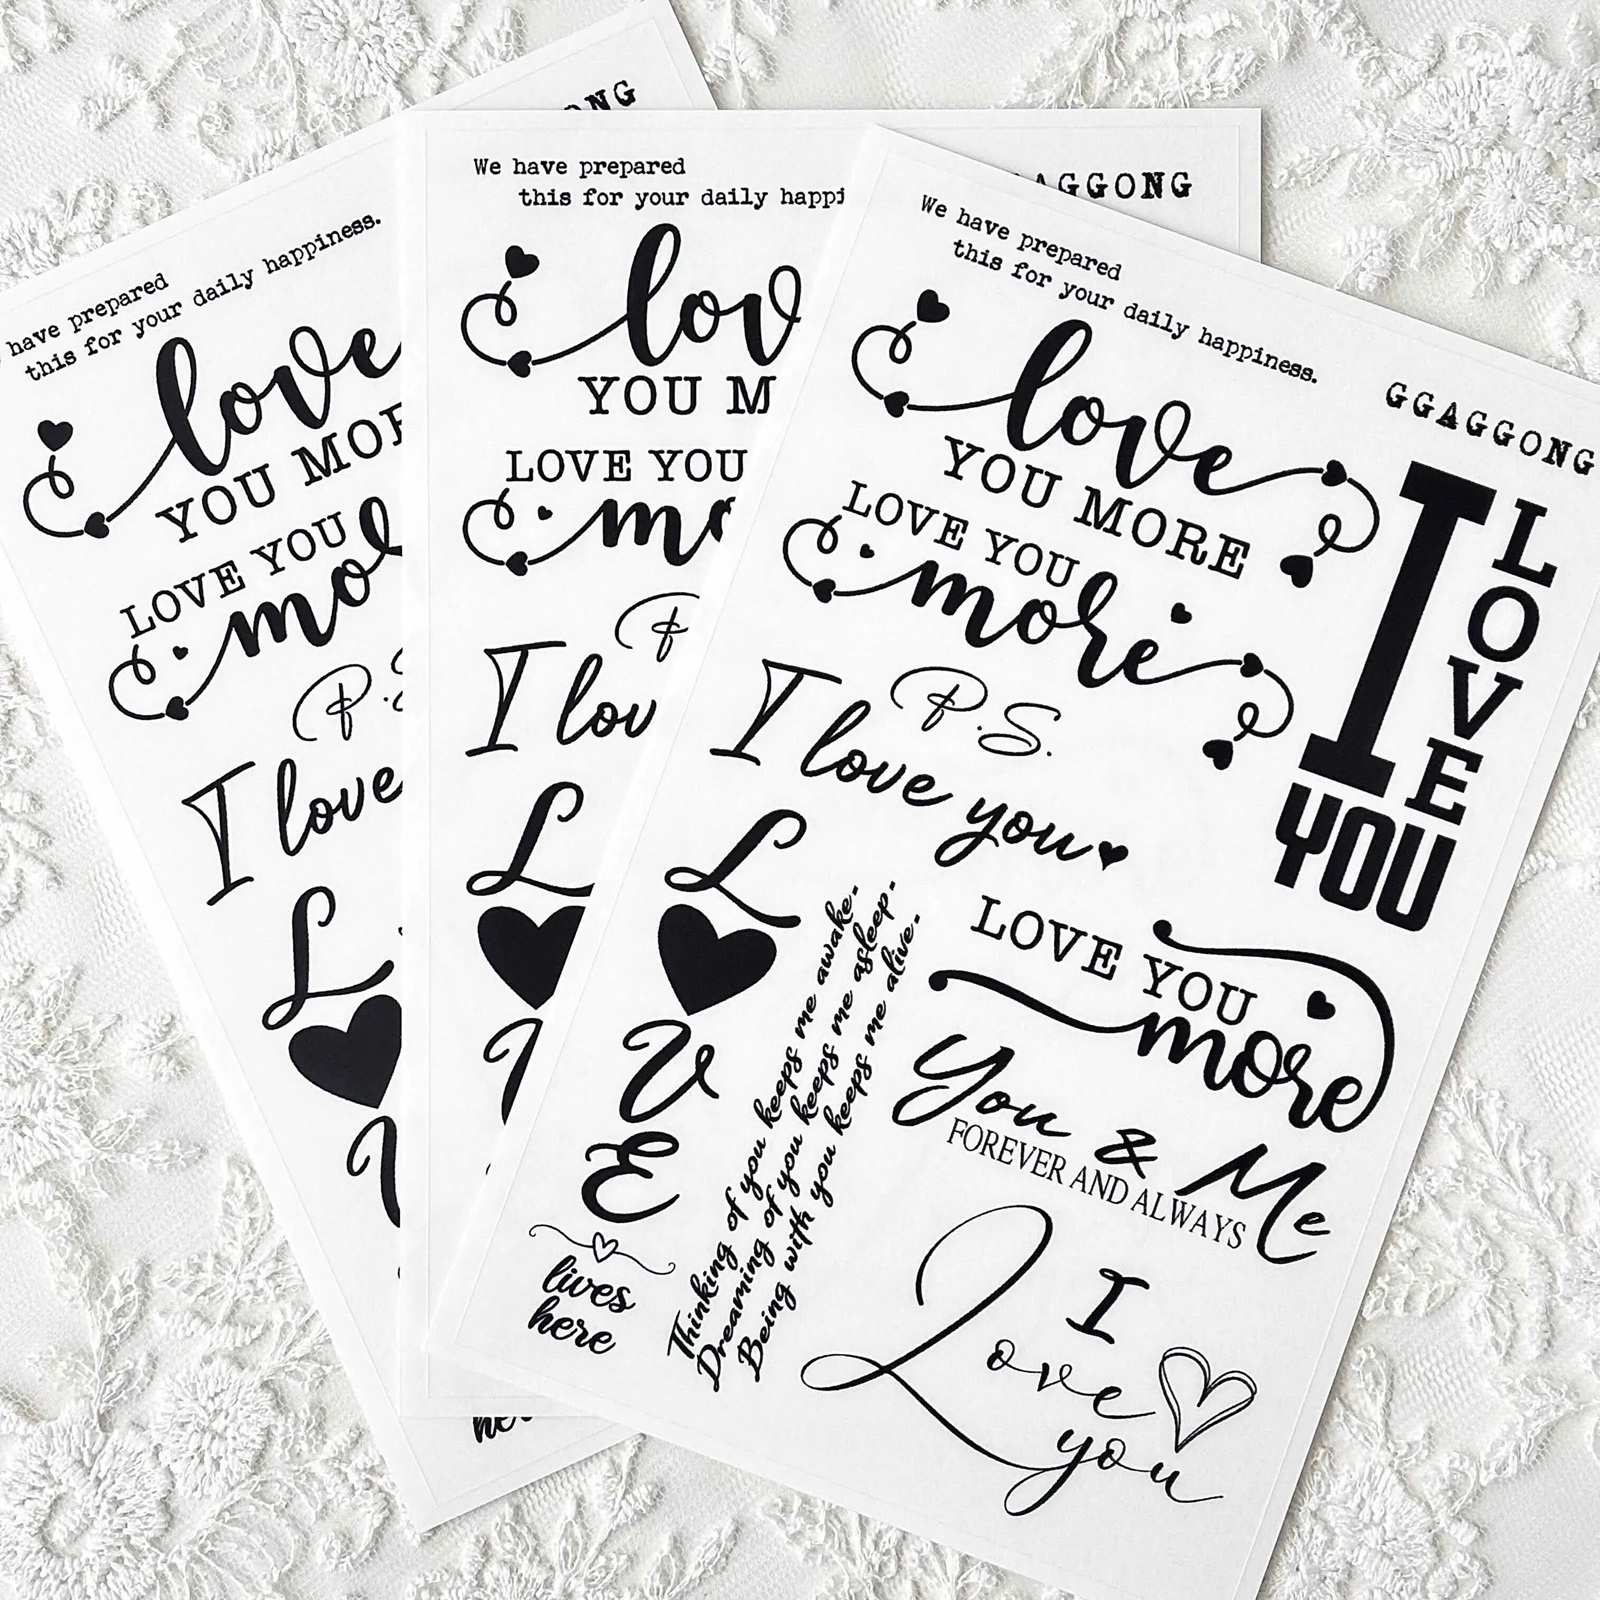 have prepared
this for your daily happiness.
love
YOU MOR
LOVE YOU
mor
P.S
I love
L
V
her
ONG
We have prepared
this for your daily happi
AGGONG
lov
YOU M
LOVE YOU
mo
P
I lov
L
We have prepared
this for your daily happiness.
GGAGGONG
love
YOU MORE
LOVE YOU
more
P.S.
I love you
I
LOVE
YOU
L
V
E
lives
here
Thinking of you keeps me awake.
Dreaming of you keeps me asleep.
Being with you keeps me alive.
LOVE YOU
more
You & Me
FOREVER AND ALWAYS
I
Love
you